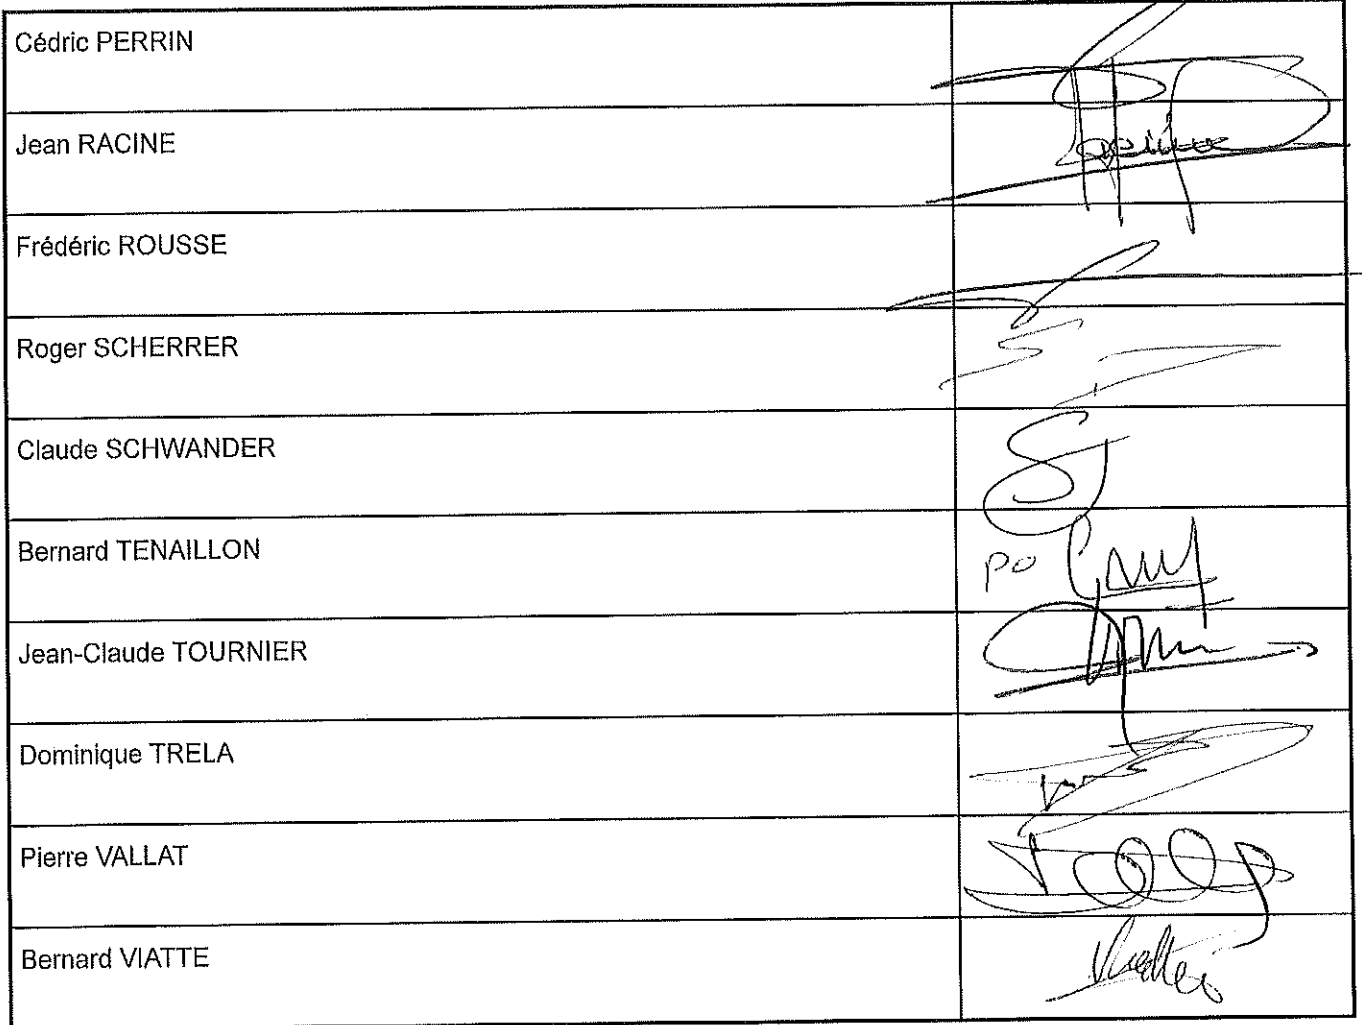 Cédric PERRIN
Jean RACINE
Racine
Frédéric ROUSSE
Roger SCHERRER
Claude SCHWANDER
Bernard TENAILLON
po
Jean-Claude TOURNIER
Dominique TRELA
Pierre VALLAT
Bernard VIATTE